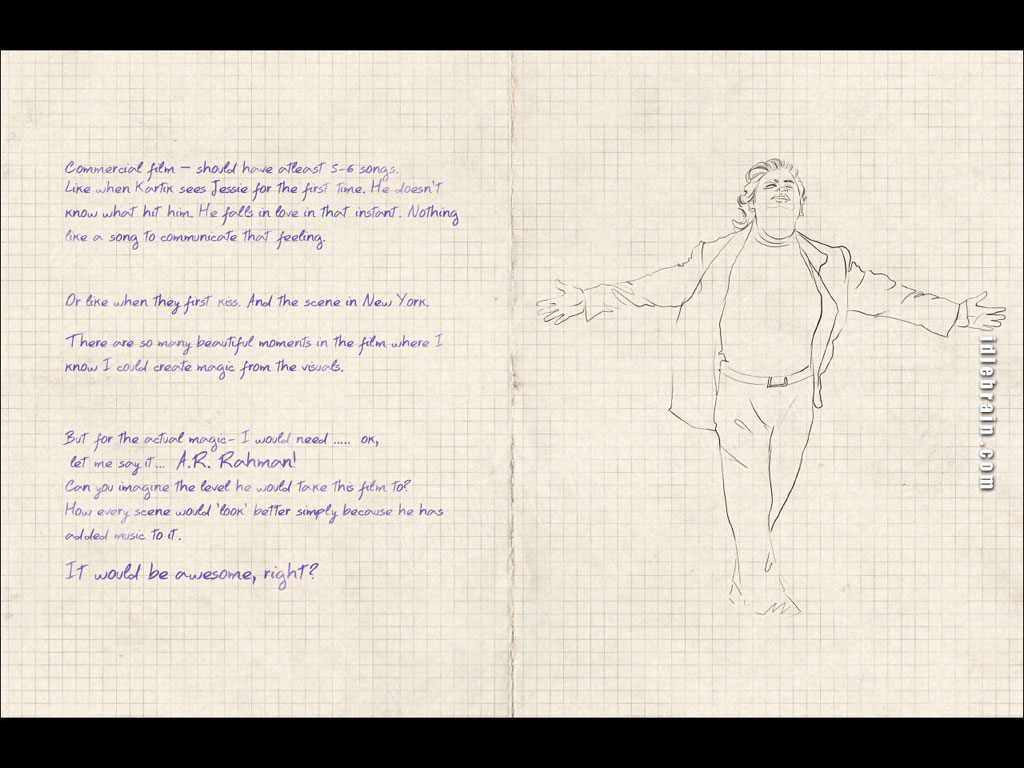 Commercial film – should have atleast 5-6 songs.
Like when Kartik sees Jessie for the first time. He doesn't
know what hit him. He falls in love in that instant. Nothing
like a song to communicate that feeling.
Or like when they first kiss. And the scene in New York.
There are so many beautiful moments in the film where I
know I could create magic from the visuals.
But for the actual magic- I would need ..... ok,
let me say it... A.R. Rahman!
Can you imagine the level he would take this film to?
How every scene would 'look' better simply because he has
added music to it.
It would be awesome, right?
idlebrain.com